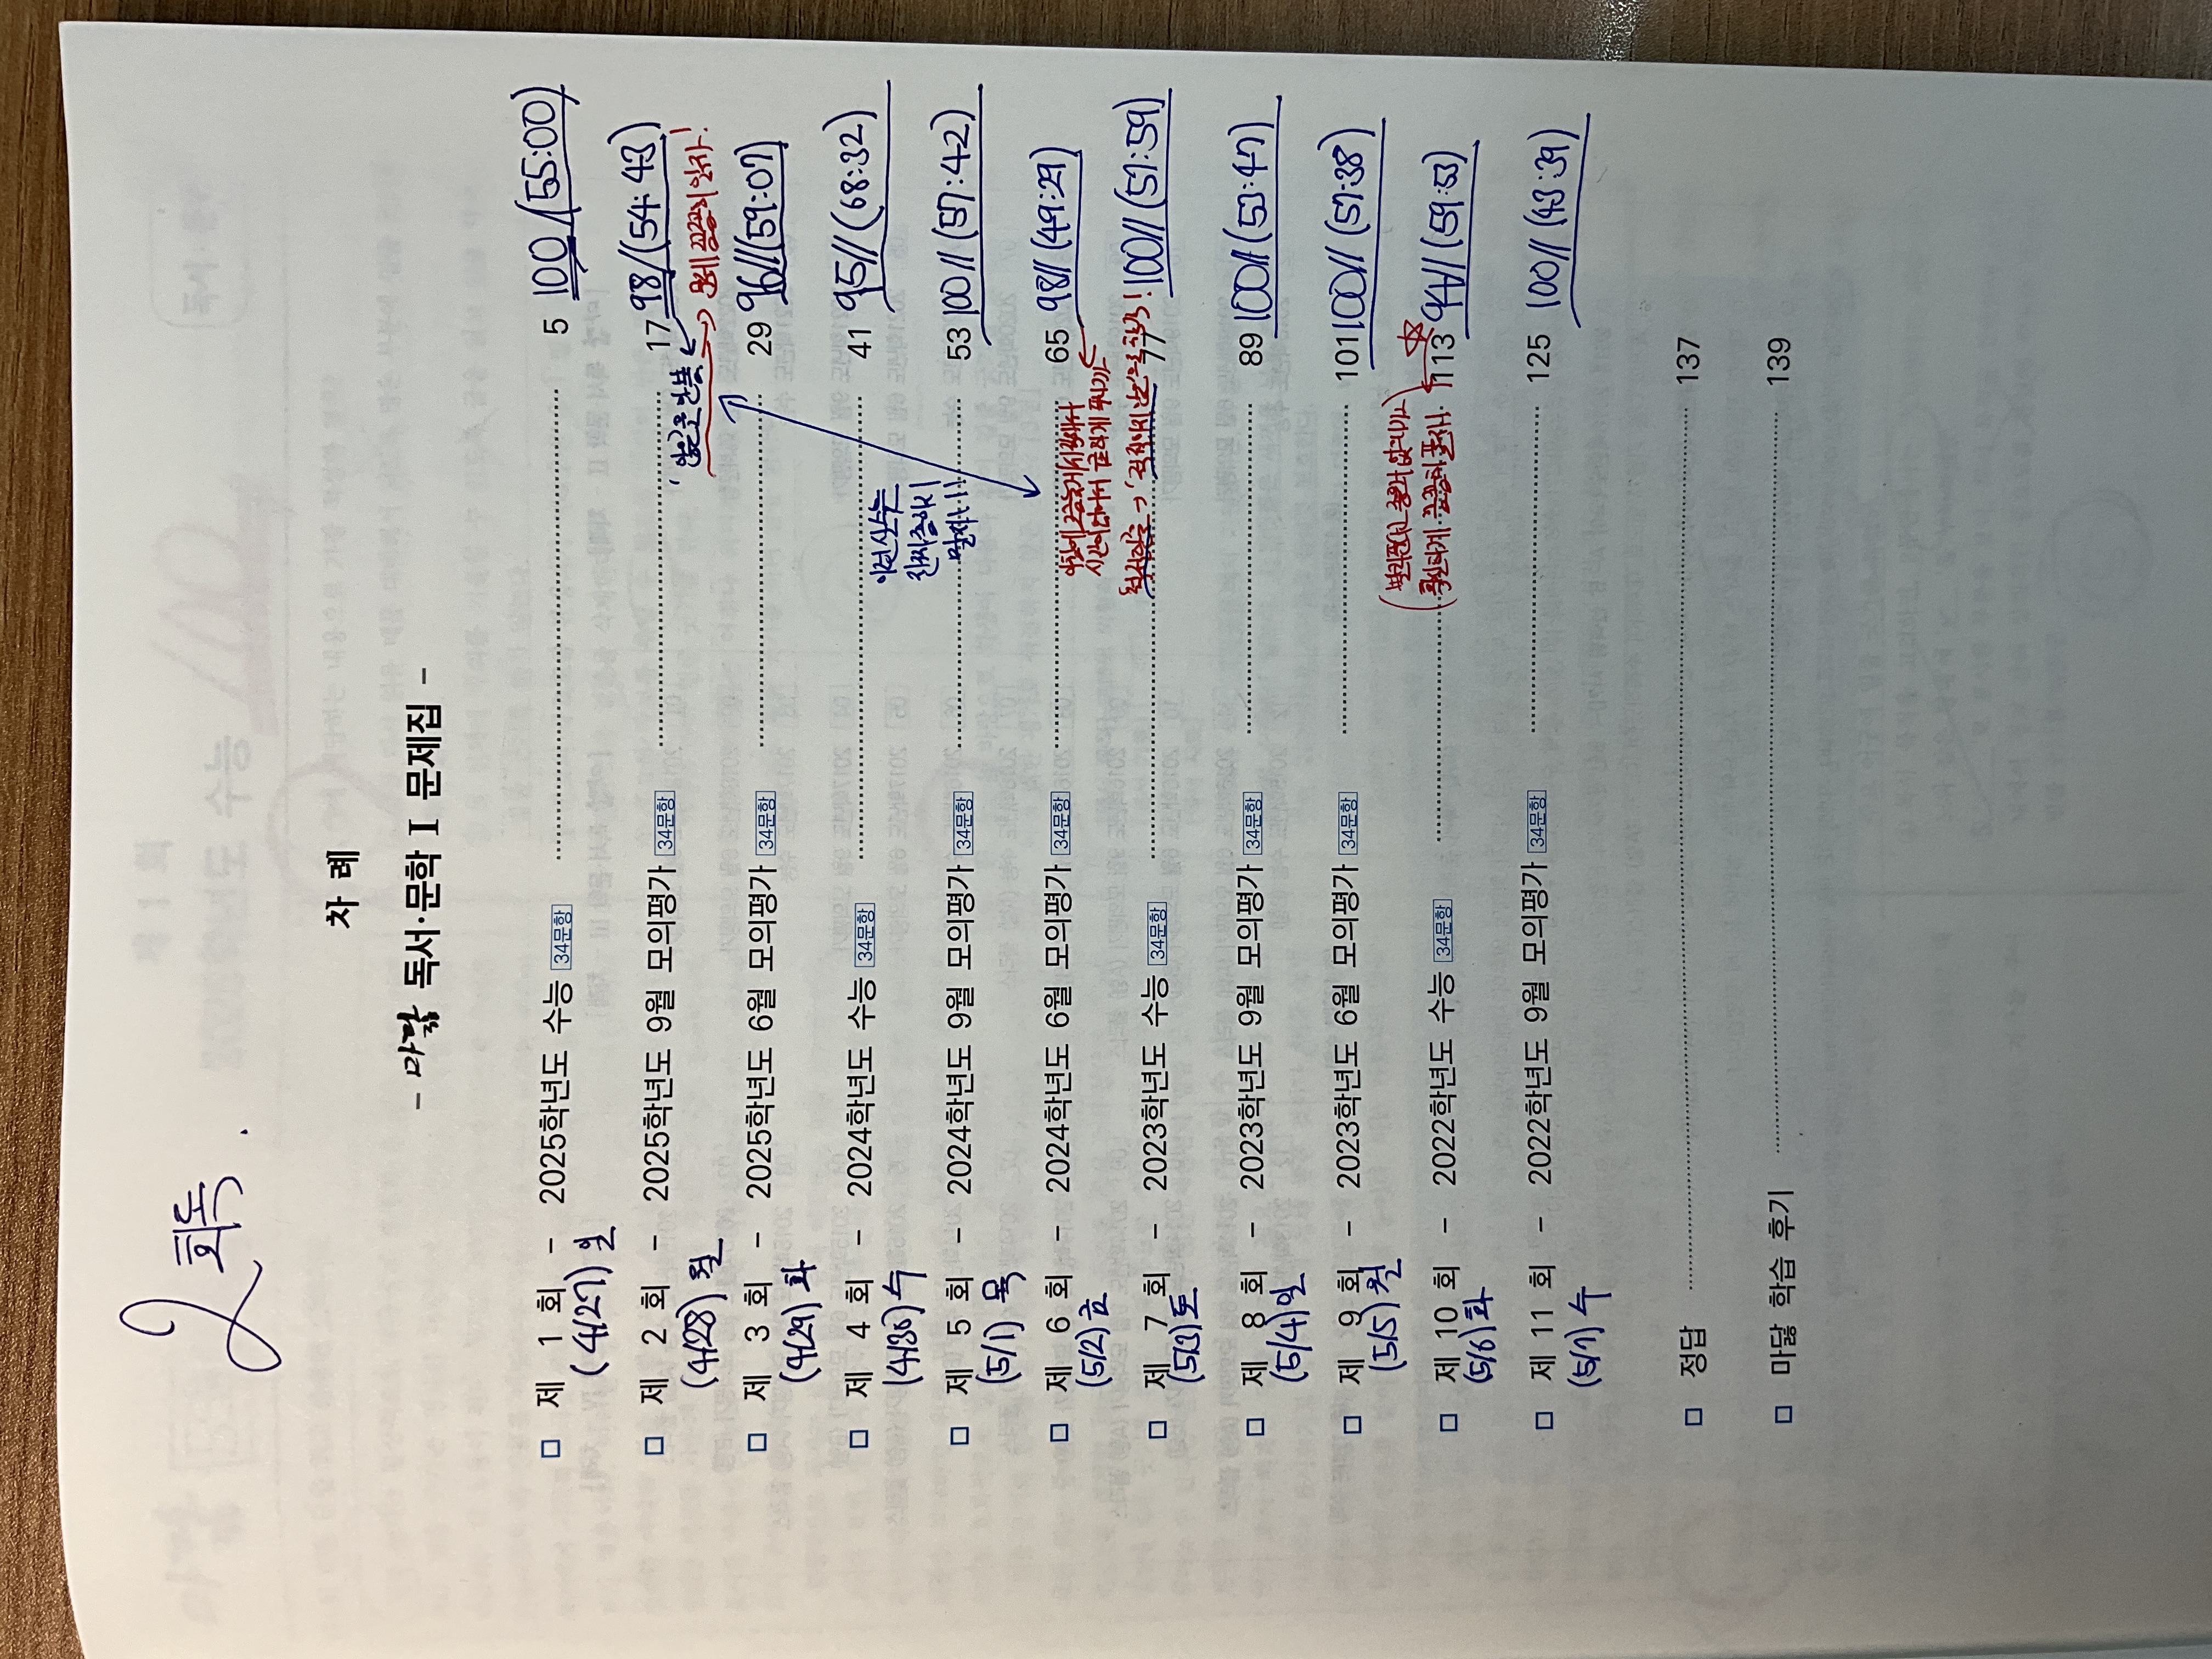 2회독.
차 례
- 마닳 독서·문학 I 문제집 -
□ 제 1 회 - 2025학년도 수능 34문항 5 100//(55:00)
(4/27) 일
□ 제 2 회 - 2025학년도 9월 모의평가 34문항 17 98//(54:43)
(4/28) 월
'않은'을 안봄
→ 문제 꼼꼼히 읽자!
□ 제 3 회 - 2025학년도 6월 모의평가 34문항 29 96//(59:07)
(4/29) 화
□ 제 4 회 - 2024학년도 수능 34문항 41 95//(68:32)
(4/30) 수
이런 실수는
진짜 하지
말자!!!
□ 제 5 회 - 2024학년도 9월 모의평가 34문항 53 100//(57:42)
(5/1) 목
□ 제 6 회 - 2024학년도 6월 모의평가 34문항 65 98//(49:29)
(5/2) 금
□ 제 7 회 - 2023학년도 수능 34문항 77 100//(57:59)
(5/3) 토
□ 제 8 회 - 2023학년도 9월 모의평가 34문항 89 100//(53:47)
(5/4) 일
□ 제 9 회 - 2023학년도 6월 모의평가 34문항 101 100//(57:38)
(5/5) 월
□ 제 10 회 - 2022학년도 수능 34문항 113 94//(59:53)
(5/6) 화
□ 제 11 회 - 2022학년도 9월 모의평가 34문항 125 100//(43:39)
(5/7) 수
□ 정답 137
□ 마닳 학습 후기 139